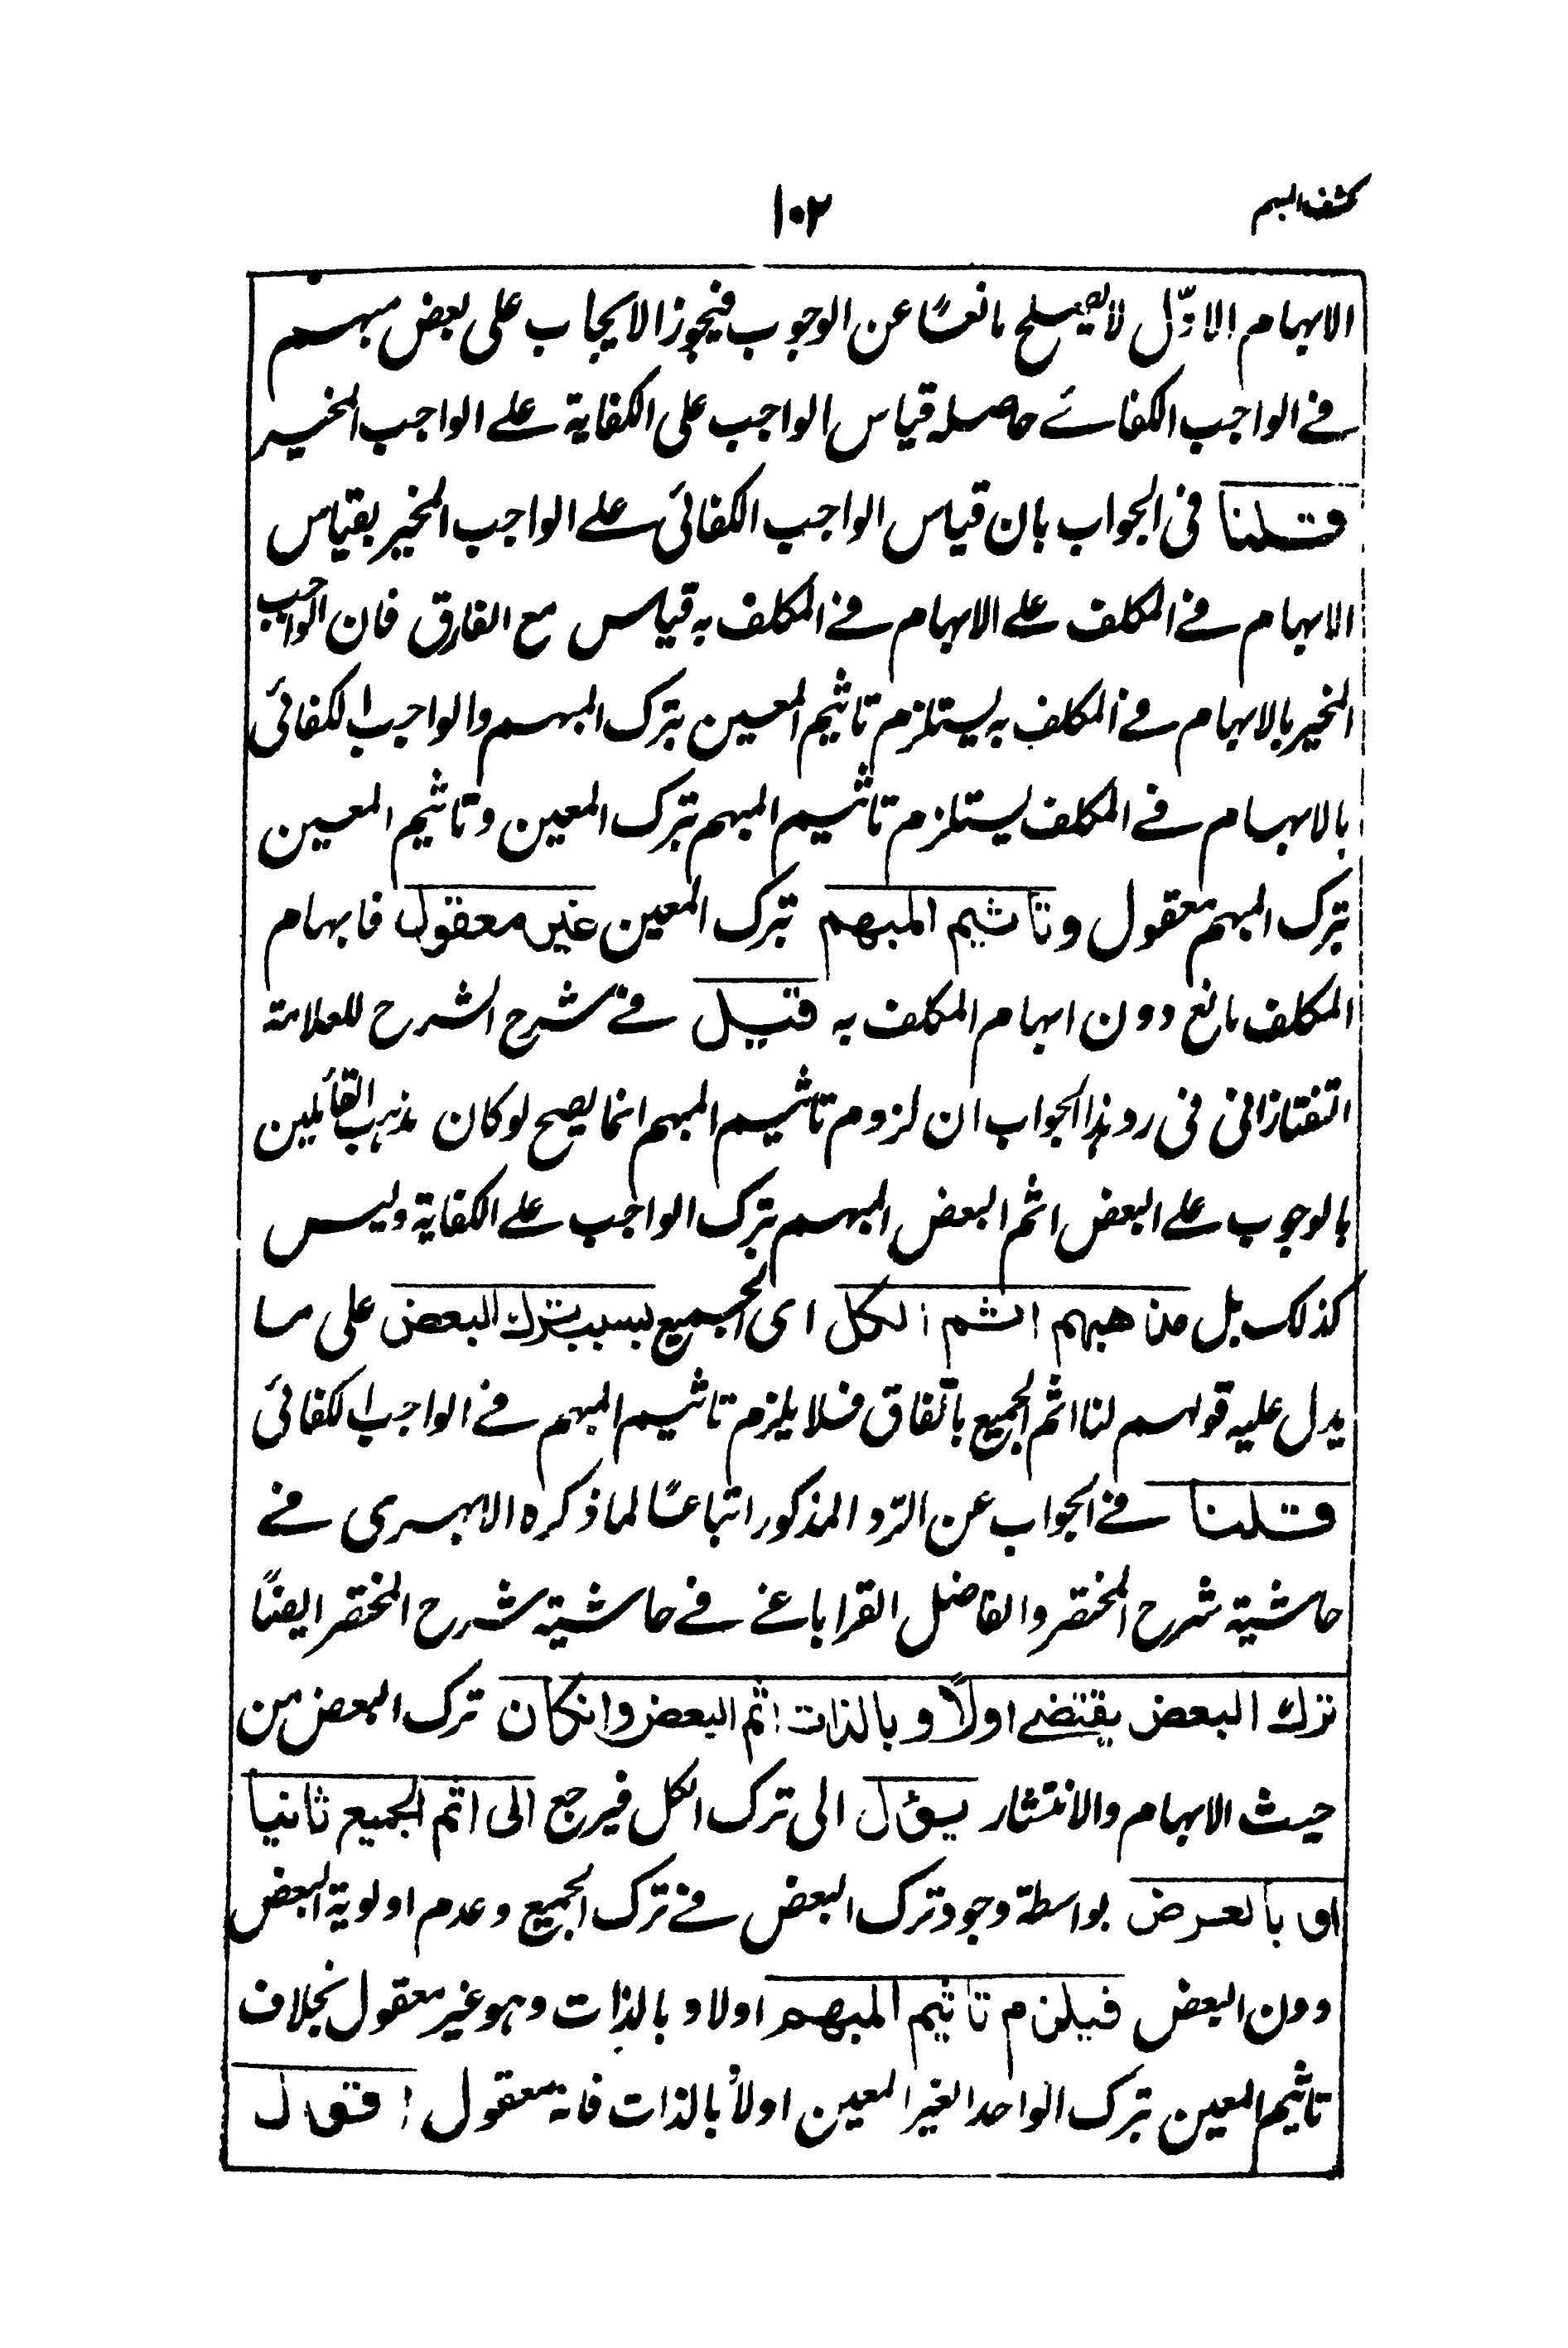 كشف المبهم
١٠٢
الابهام الاوّل لا يصلح مانعًا عن الوجوب فيجوز الايجاب على بعض مبهم
في الواجب الكفائے حاصله قياس الواجب على الكفاية على الواجب المخير
قلنا في الجواب بان قياس الواجب الكفائي على الواجب المخير بقياس
الابهام في المكلف على الابهام في المكلف به قياس مع الفارق فان الواجب
المخير بالابهام في المكلف به يستلزم تاثيم المعين بترك المبهم والواجب الكفائي
بالابهام في المكلف يستلزم تاثيم المبهم بترك المعين وتاثيم المعين
بترك المبهم معقول وتاثيم المبهم بترك المعين غير معقول فابهام
المكلف مانع دون ابهام المكلف به قيل في شرح الشرح للعلامة
التفتازاني في رد هذا الجواب ان لزوم تاثيم المبهم انما يصح لو كان مذهب القائلين
بالوجوب على البعض اثم البعض المبهم بترك الواجب على الكفاية وليس
كذلك بل مذهبهم اثم الكل اى الجميع بسبب ترك البعض على ما
يدل عليه قولهم لنا اثم الجميع باتفاق فلا يلزم تاثيم المبهم في الواجب الكفائي
قلنا في الجواب عن الرّد المذكور اتباعًا لما ذكره الابهرى في
حاشية شرح المختصر والفاضل القراباغي في حاشية شرح المختصر ايضًا
ترك البعض يقتضے اولًا و بالذات اثم البعض وانكان ترك البعض من
حيث الابهام والانتشار يؤل الى ترك الكل فيرجع الى اثم الجميع ثانيا
او بالعرض بواسطة وجود ترك البعض في ترك الجميع وعدم اولوية البعض
دون البعض فيلزم تاثيم المبهم اولا و بالذات وهو غير معقول بخلاف
تاثيم المعين بترك الواحد الغير المعين اولاً بالذات فانه معقول اقول